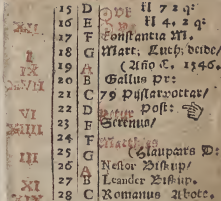 15 D kl 7 2 q:
XII 16 E kl 4. 2 q:
17 F Constantia M.
I 18 G Matt: Luth: deide/
IX 19 A (Año C. 1546.
XVII 20 B Gallus Pr:
21 C 79 Pijslarvottar/
VI 22 D Post:
XIIII 23 E Serenus/
24 F Matthias
III 25 G (Glaupars D:
26 A Nestor Biskup/
XI 27 B Leander Biskup.
28 C Romanus Abote.